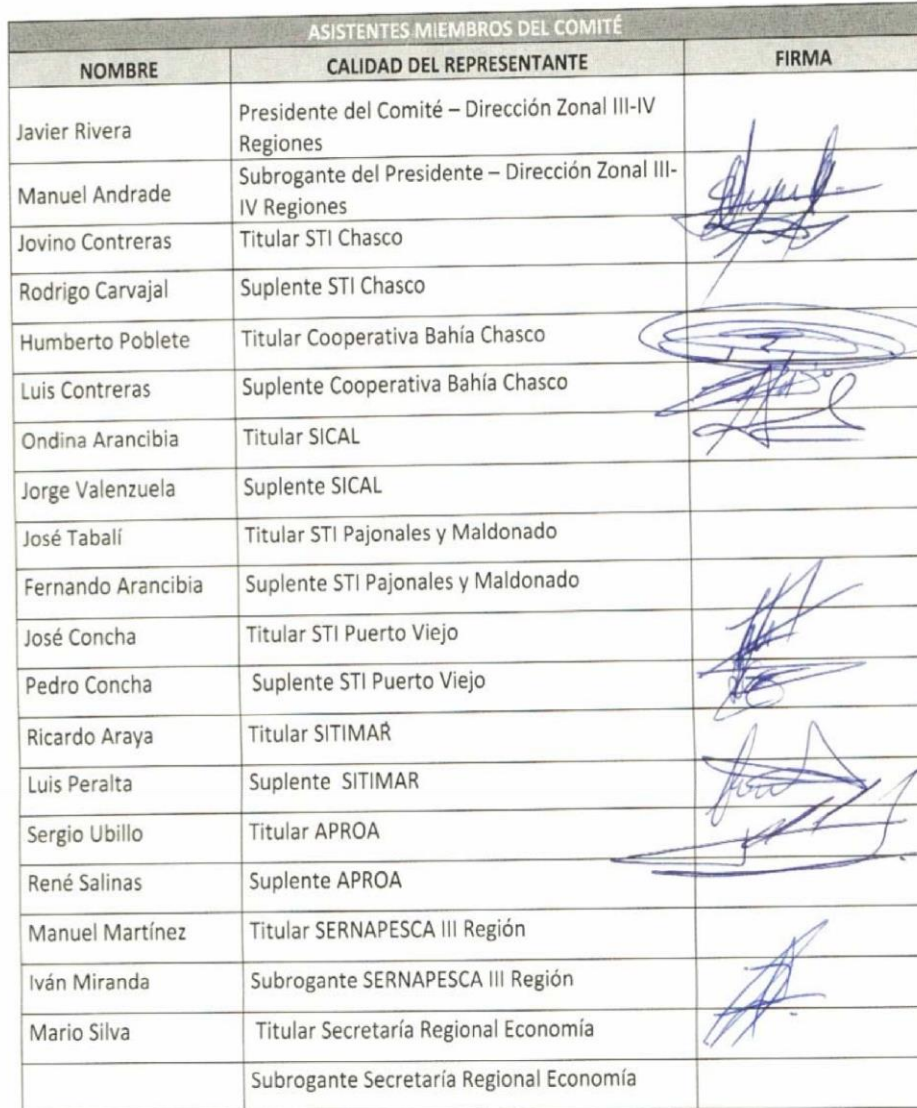 ASISTENTES MIEMBROS DEL COMITÉ
NOMBRE CALIDAD DEL REPRESENTANTE FIRMA
Javier Rivera Presidente del Comité – Dirección Zonal III-IV
Regiones
Manuel Andrade Subrogante del Presidente – Dirección Zonal III-
IV Regiones
Jovino Contreras Titular STI Chasco
Rodrigo Carvajal Suplente STI Chasco
Humberto Poblete Titular Cooperativa Bahía Chasco
Luis Contreras Suplente Cooperativa Bahía Chasco
Ondina Arancibia Titular SICAL
Jorge Valenzuela Suplente SICAL
José Tabalí Titular STI Pajonales y Maldonado
Fernando Arancibia Suplente STI Pajonales y Maldonado
José Concha Titular STI Puerto Viejo
Pedro Concha Suplente STI Puerto Viejo
Ricardo Araya Titular SITIMAR
Luis Peralta Suplente SITIMAR
Sergio Ubillo Titular APROA
René Salinas Suplente APROA
Manuel Martínez Titular SERNAPESCA III Región
Iván Miranda Subrogante SERNAPESCA III Región
Mario Silva Titular Secretaría Regional Economía
Subrogante Secretaría Regional Economía